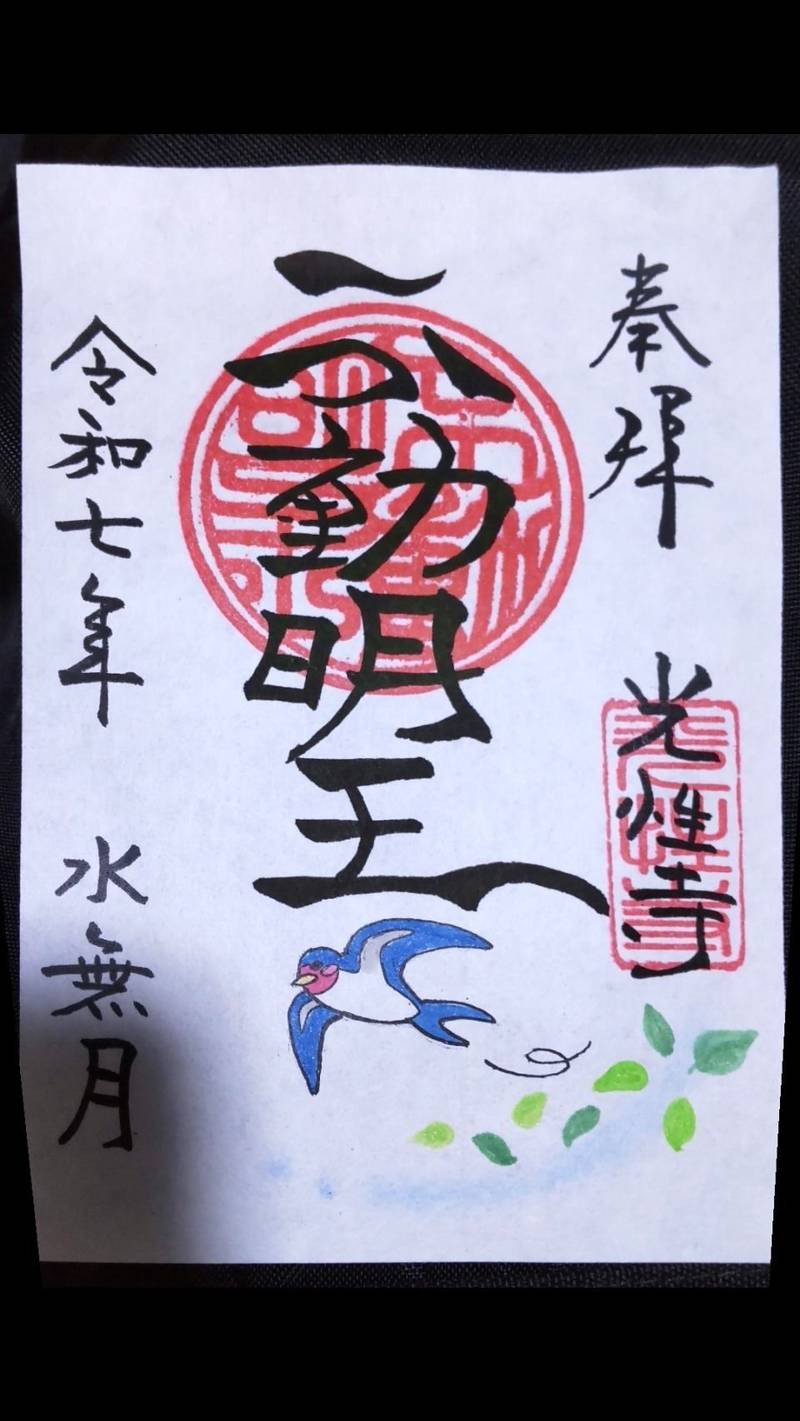 奉拝
光性寺
不動明王
令和七年
水無月